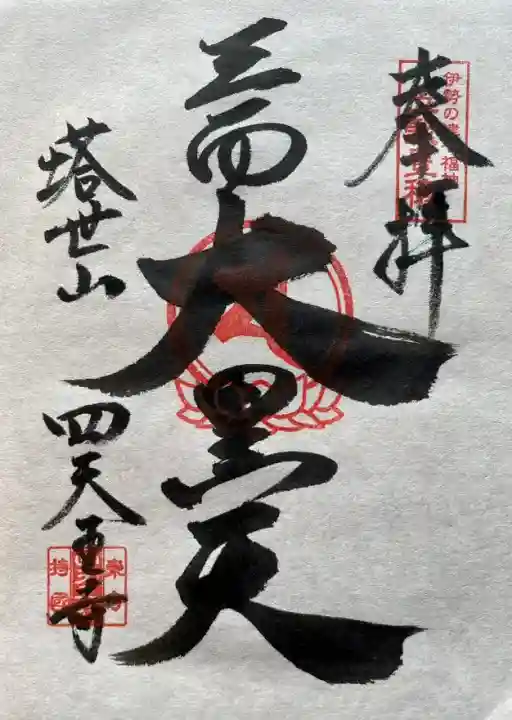 奉拝
三面大黒天
塔世山
四天王寺
伊勢の津
福神